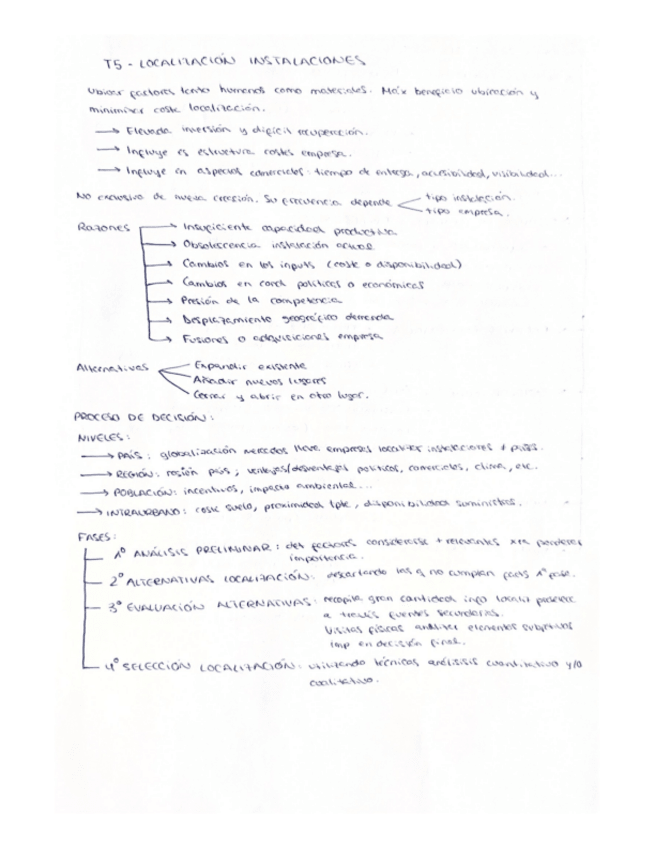 T5 - LOCALIZACIÓN INSTALACIONES
Ubicar factores tanto humanos como materiales. Máx beneficio ubicación y
minimizar coste localización.
→ Elevada inversión y difícil recuperación.
→ Influye es estructura costes empresa.
→ Influye en aspectos comerciales: tiempo de entrega, accesibilidad, visibilidad...
No exclusivo de nueva creación. Su frecuencia depende tipo instalación.
tipo empresa.
Razones → Insuficiente capacidad productiva
→ Obsolescencia instalación actual
→ Cambios en los inputs (coste o disponibilidad)
→ Cambios en cond políticas o económicas
→ Presión de la competencia
→ Desplazamiento geográfico demanda
→ Fusiones o adquisiciones empresa
Alternativas Expandir existente
Añadir nuevos lugares
Cerrar y abrir en otro lugar.
PROCESO DE DECISIÓN:
NIVELES:
→ PAÍS: globalización mercados lleva empresas localizar instalaciones ≠ países.
→ REGIÓN: región país; ventajas/desventajas políticas, comerciales, clima, etc.
→ POBLACIÓN: incentivos, impacto ambiental...
→ INTRAURBANO: coste suelo, proximidad tpte, disponibilidad suministros.
FASES:
1º ANÁLISIS PRELIMINAR: det factores considerarse + relevantes xra ponderar
importancia.
2º ALTERNATIVAS LOCALIZACIÓN: descartando las q no cumplan facts 1ª fase.
3º EVALUACIÓN ALTERNATIVAS: recopila gran cantidad info
a través fuentes secundarias.
Visitas físicas analizar elementos subjetivos
imp en decisión final.
4º SELECCIÓN LOCALIZACIÓN: utilizando técnicas análisis cuantitativo y/o
cualitativo.